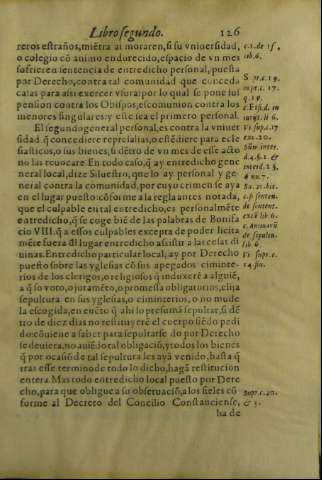 Libro segundo. 126
reros estraños, miẽtra ai moraren, si su vniuersidad,
o colegio cõ animo endurecido, espacio de vn mes
sufrieren sentencia de entredicho personal, puesta
por Derecho, contra tal comunidad que conceda
casas para assi exercer vsura: por lo qual se pone sus
pension contra los Obispos, escomunion contra los
menores singulares: y este sea el primero personal.
El segundo general personal, es contra la vniuer
sidad q̃ concediere represalias, o estẽdiere para ecle
siasticos, o sus bienes, si dẽtro de vn mes de esse acto
no las reuocare. En todo caso, q̃ ay entredicho gene
ral local, dize Siluestro, que lo ay personal y ge-
neral contra la comunidad, por cuyo crimen se aya
en el lugar puesto: cõforme a la reglantes notada,
que el culpable en tal entredicho, es personalmẽte
entredicho, q̃ se coge biẽ de las palabras de Bonifa
cio VIII. q̃ a essos culpables excepta de poder licita
mẽte fuera dl lugar entredicho assistir a las celas di
uinas. Entredicho particular local, ay por Derecho
puesto sobre las yglesias cõ sus apegados ciminte-
rios de los clerigos, o religiosos q̃ induxerẽ a alguiẽ,
a q̃ so voto, o jutamẽto, o promessa obligatorios, elija
sepultura en sus yglesias, o ciminterios, o no mude
la escogida, en euẽto q̃ ahi lo presumã sepultar, si dẽ
tro de diez dias no restituyerẽ el cuerpo siẽdo pedi
do: cõuiene a saber para sepultarse do por Derecho
se deuiera, no auiẽdo tal obligaciõ, y todos los bienes
q̃ por ocasiõ de tal sepultura les ayã venido, hasta q̃
tras esse termino de todo lo dicho, hagã restitucion
entera. Mas todo entredicho local puesto por Dere
cho, para que obligue a su obseruaciõ, a los fieles cõ
forme al Decreto del Concilio Constanciense,
ha de
c.1. de vs.
lib. 6.
S pr. c. 19.
q 19.
c. 1. de
Vt sup. c. 17
Vt supr. c.
14. fin.
supr. c. 20.
& 3.